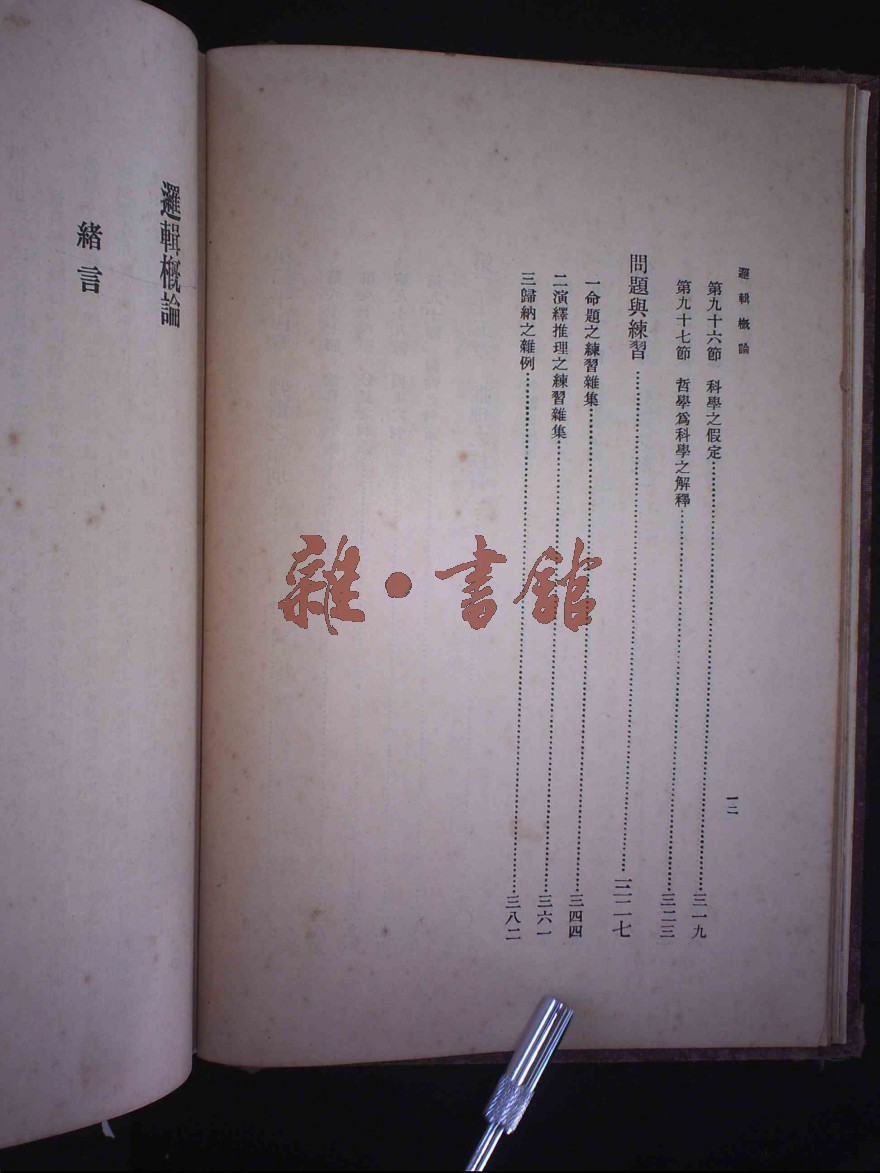 邏輯概論
一二
第九十六節　科學之假定……三一九
第九十七節　哲學爲科學之解釋……三二三
問題與練習……三二七
一命題之練習雜集……三四四
二演繹推理之練習雜集……三六一
三歸納之雜例……三八二
邏輯概論
緒言
雜·書館